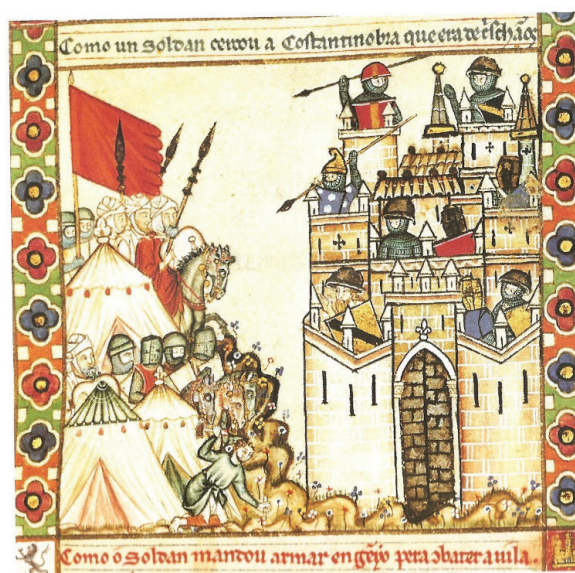 Como un Soldan cercou a Costantinobra que era de crischãos
Como o Soldan mandou armar engẽyo pera conbater a uila.